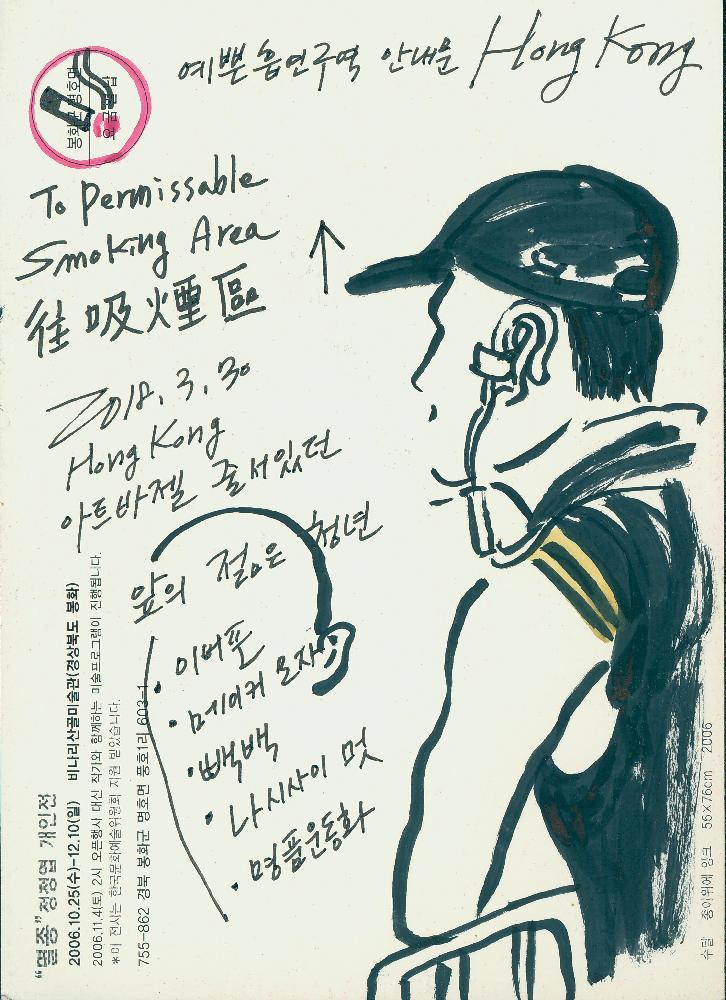 예쁜 흡연구역 안내문 Hong Kong
To Permissable
Smoking Area
往吸煙區
2018. 3. 30
Hong Kong
아트바젤 줄서있던
앞의 젊은 청년
• 이어폰
• 메이커 모자
• 빽백
• 나시사이 멋
• 명품운동화
“멸종” 정정엽 개인전
2006.10.25(수)-12.10(일) 비나리산골미술관(경상북도 봉화)
2006.11.4(토) 2시 오픈행사 대신 작가와 함께하는 미술프로그램이 진행됩니다.
*이 전시는 한국문화예술위원회 지원 받았습니다.
755-862 경북 봉화군 명호면 풍호1리 603-1
수달 종이위에 잉크 56×76cm 2006